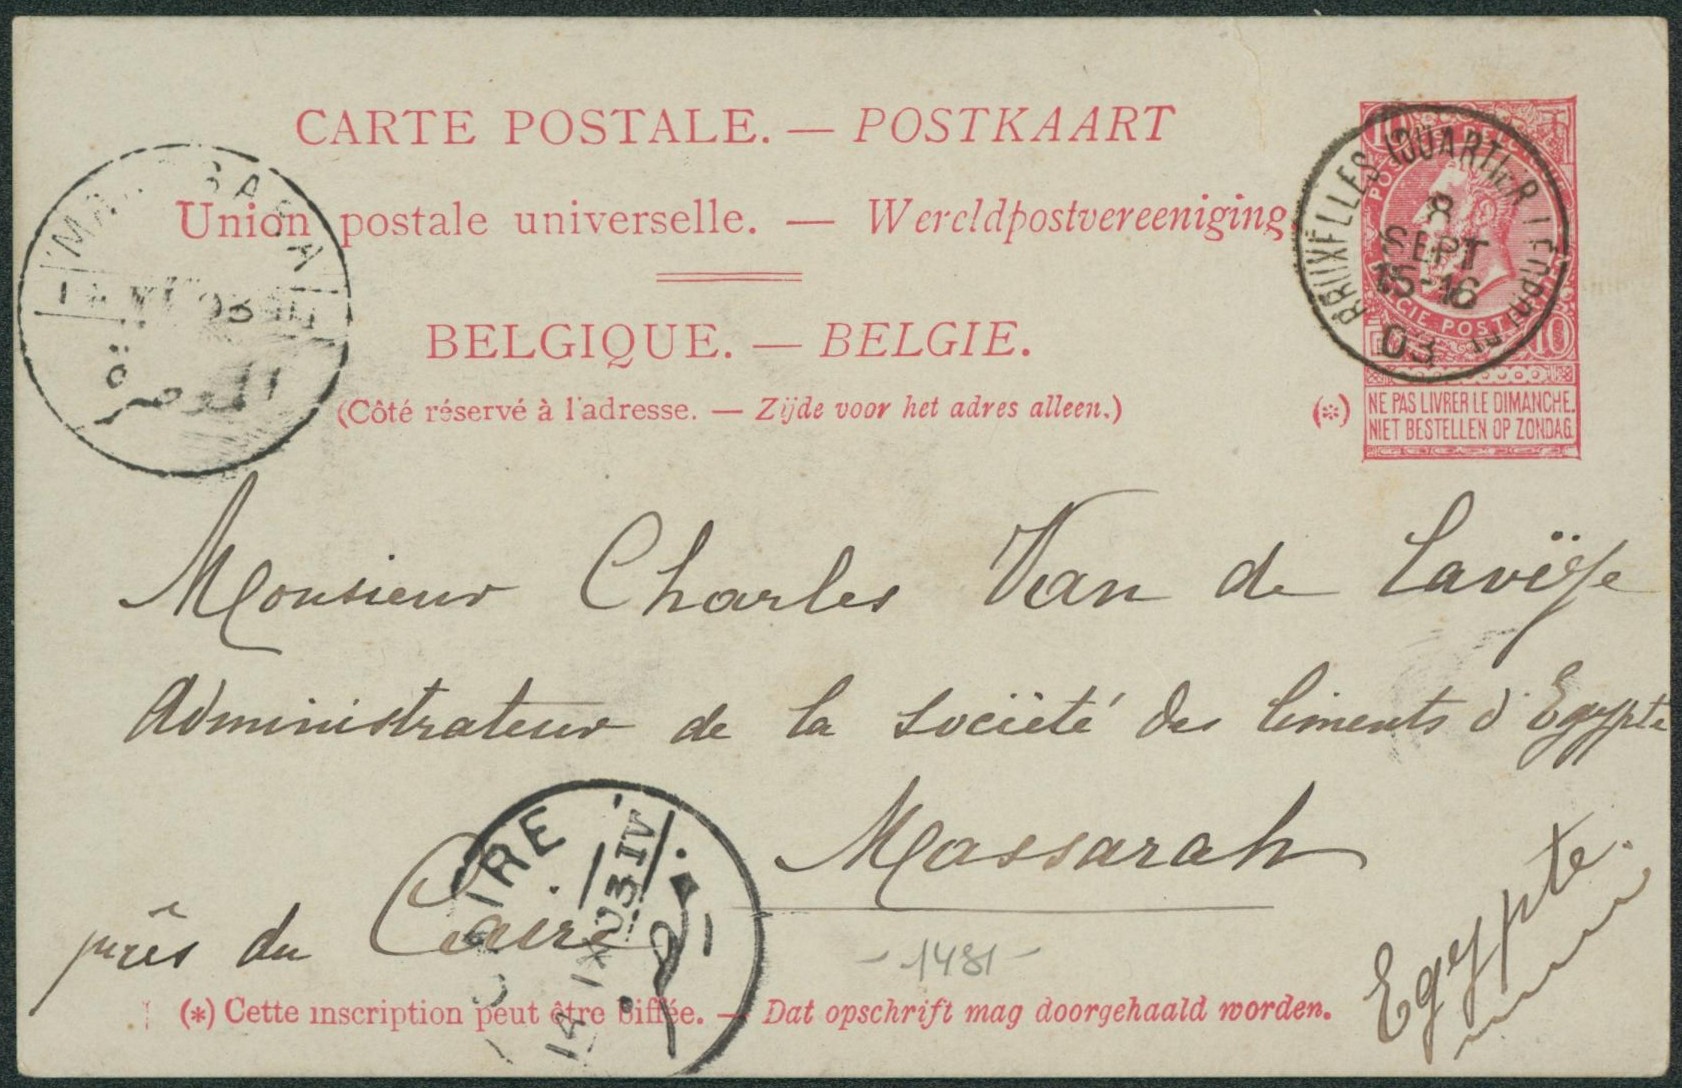 CARTE POSTALE. — POSTKAART
Union postale universelle. — Wereldpostvereeniging
BELGIQUE. — BELGIE.
(Côté réservé à l'adresse. — Zijde voor het adres alleen.)
(*)
NE PAS LIVRER LE DIMANCHE.
NIET BESTELLEN OP ZONDAG.
10 10
BRUXELLES (QUARTIER LEOPOLD)
8
SEPT
15-16
03
Monsieur Charles Van de
Administrateur de la Sociëté des Ciments d'Egypte
Massarah
près du Caire
Egypte.
CAIRE
14 IX 03 IV
-1481-
(*) Cette inscription peut être biffée. — Dat opschrift mag doorgehaald worden.